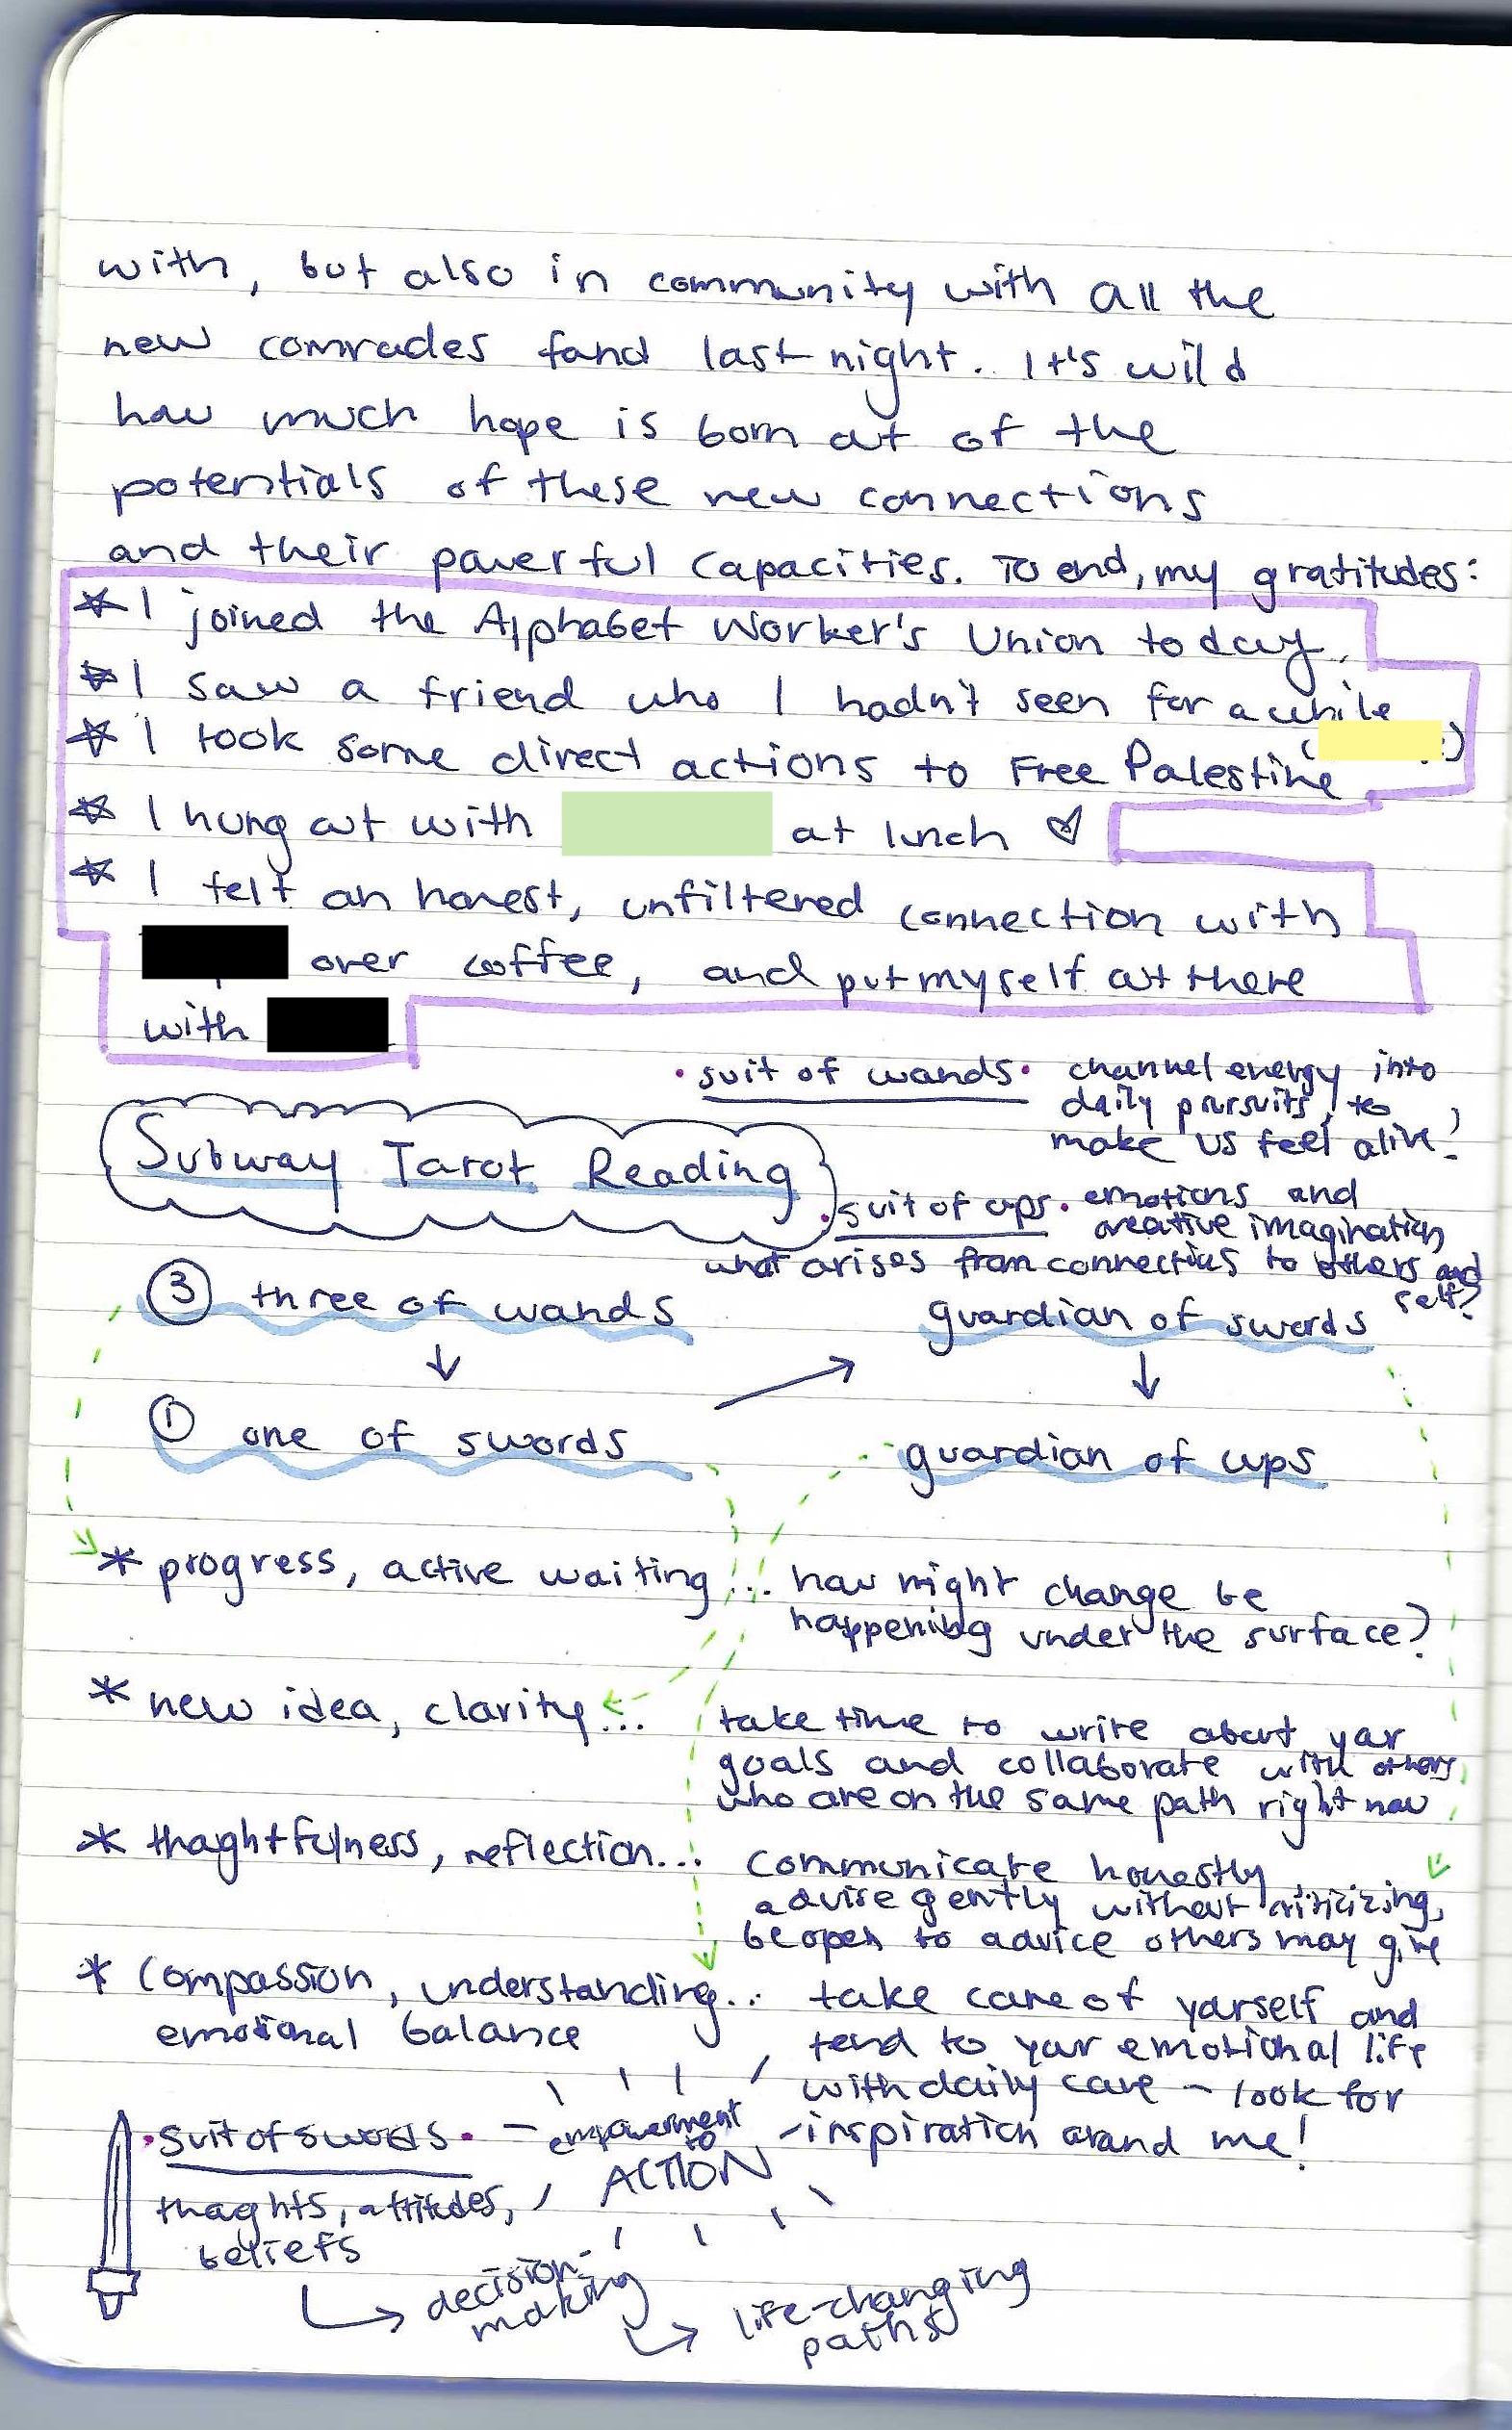 with, but also in community with all the
new comrades fand last night. It's wild
how much hope is born out of the
potentials of these new connections
and their powerful capacities. To end, my gratitudes:
☆ I joined the Alphabet Worker's Union today.
☆ I saw a friend who I hadn't seen for a while
☆ I took some direct actions to Free Palestine
☆ I hung out with at lunch ♡
☆ I felt an honest, unfiltered connection with
over coffee, and put myself out there
with
• suit of wands • channel energy into
daily pursuits, to
make us feel alive!
Subway Tarot Reading
• suit of cups • emotions and
creative imagination
what arises from connections to others and
self?
③ three of wands
↓
① one of swords
→
guardian of swords
↓
guardian of cups
* progress, active waiting... how might change be
happening under the surface?
* new idea, clarity... take time to write about your
goals and collaborate with others
who are on the same path right now
* thoughtfulness, reflection... communicate honestly,
advise gently without criticizing,
be open to advice others may give
* compassion, understanding... take care of yourself and
emotional balance
tend to your emotional life
with daily care - look for
inspiration around me!
• suit of swords • - empowerment
to
ACTION
thoughts, attitudes,
beliefs
↳ decision-
making
↳ life-changing
paths